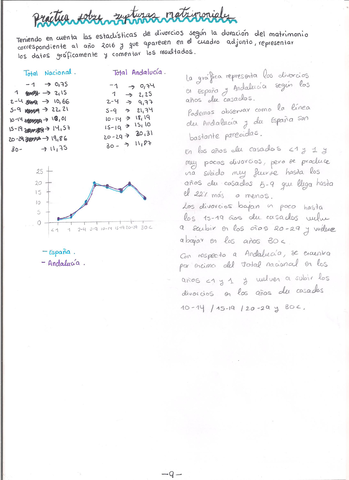 Práctica sobre rupturas matrimoniales
Teniendo en cuenta las estadísticas de divorcios según la duración del matrimonio
correspondiente al año 2010 y que aparecen en el cuadro adjunto, representar
los datos gráficamente y comentar los resultados.
Total Nacional.
-1 → 0,75
1 → 2,15
2-4 → 10,66
5-9 → 22,21
10-14 → 18,01
15-19 → 14,57
20-29 → 19,86
30- → 11,75
Total Andalucía.
-1 → 0,74
1 → 2,25
2-4 → 9,77
5-9 → 21,74
10-14 → 18,19
15-19 → 15,10
20-29 → 20,31
30- → 11,87
25
20
15
10
5
0
<1 1 2-4 5-9 10-14 15-19 20-29 30<
- España
- Andalucía
La gráfica representa los divorcios
en España y Andalucía según los
años de casados.
Podemos observar como la línea
de Andalucía y de España son
bastante parecidas.
En los años de casados <1 y 1 y
muy pocos divorcios, pero se produce
una subida muy fuerte hasta los
años de casados 5-9 que llega hasta
el 22% más o menos.
Los divorcios bajan un poco hasta
los 15-19 años de casados vuelve
a subir en los años 20-29 y vuelve
a bajar en los años 30<
Con respecto a Andalucía, se encuentra
por encima del Total nacional en los
años <1 y 1 y vuelven a subir los
divorcios en los años de casados
10-14 / 15-19 / 20-29 y 30<
-9-